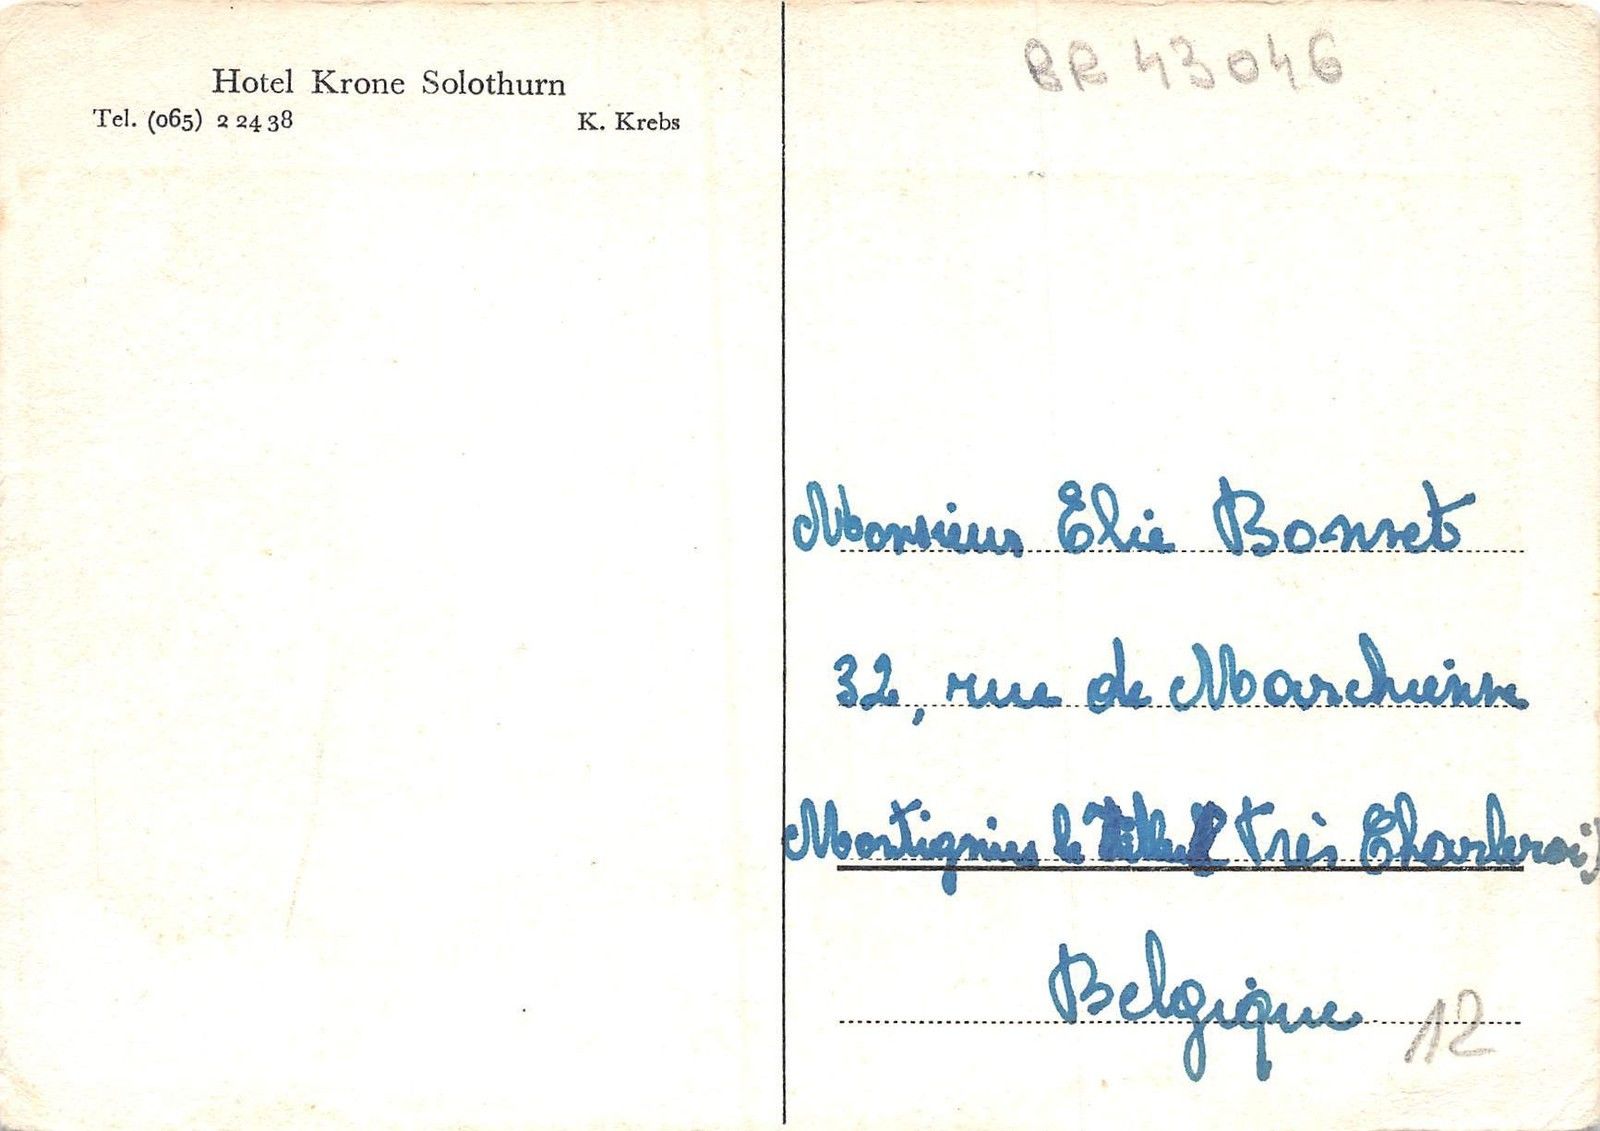 Hotel Krone Solothurn
Tel. (065) 2 24 38 K. Krebs
BR 43046
Monsieur Elie Bonnet
32, rue de Marchienne
Montignies le Tilleul (près Charleroi)
Belgique
12